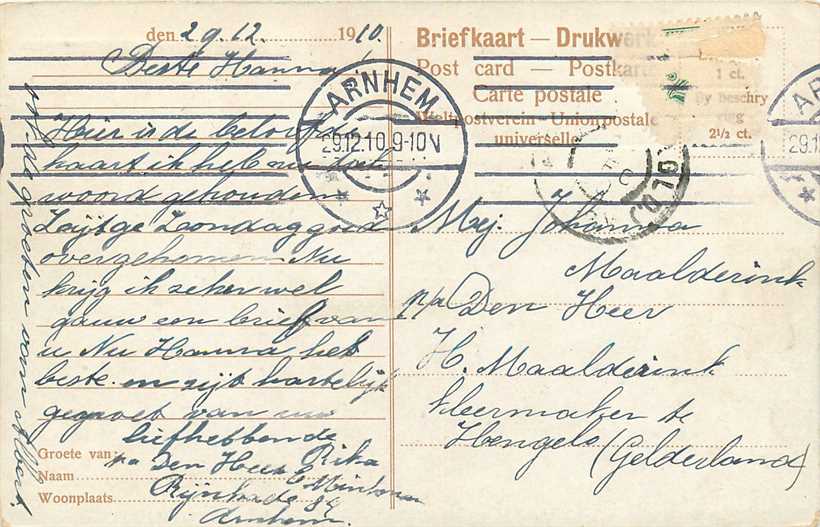 den 29.12. 1910.
Beste Hanna!
Hier is de beloofde
kaart ik heb nu toch
woord gehouden
Zijtge Zondag goed
overgekomen. Nu
krijg ik zeker wel
gauw een brief van
u Nu Hanna het
beste en zijt hartelijk
gegroet van uw
liefhebbende
Rika
Groete van
Naam p/a Den Heer
Woonplaats Rijnkade 84
Arnhem.
van de groeten van Albert
Briefkaart — Drukwerk
Post card — Postkarte
Carte postale
Weltpostverein - Union postale
universelle
1 ct.
By beschry
ving
2½ ct.
ARNHEM
29.12.10 9-10 V
AR
29.1
Mej. Johanna
Maalderink
p/a Den Heer
H. Maalderink
kleermaker te
Hengelo
(Gelderland)